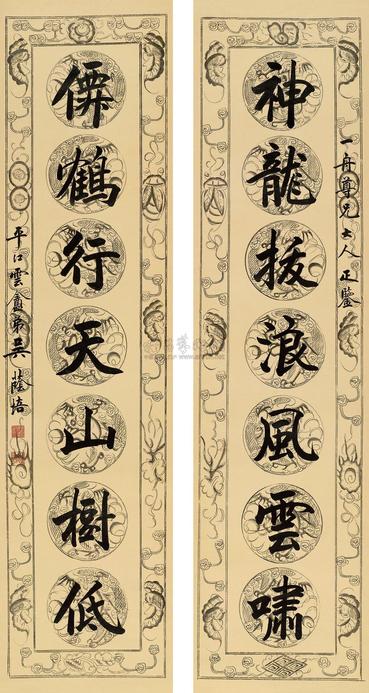 一舟尊兄大人正鑒
神龍拔浪風雲嘯
僊鶴行天山樹低
平江雲盦弟吳蔭培